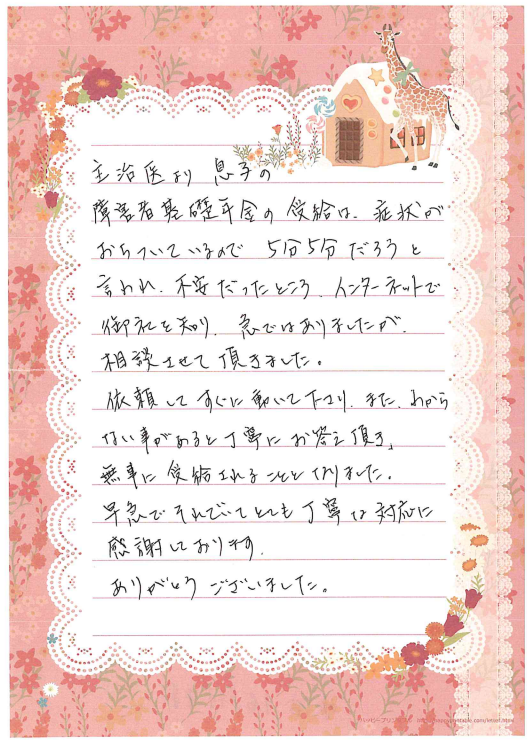 主治医より 息子の
障害者基礎年金の受給は、症状が
おちついているので 5分5分だろうと
言われ、不安だったところ、インターネットで
御社を知り、急ではありましたが、
相談させて頂きました。
依頼してすぐに動いて下さり、また、わから
ない事があると丁寧にお答え頂き、
無事に受給されることとなりました。
早急でそれでいてとても丁寧な対応に
感謝しております。
ありがとうございました。